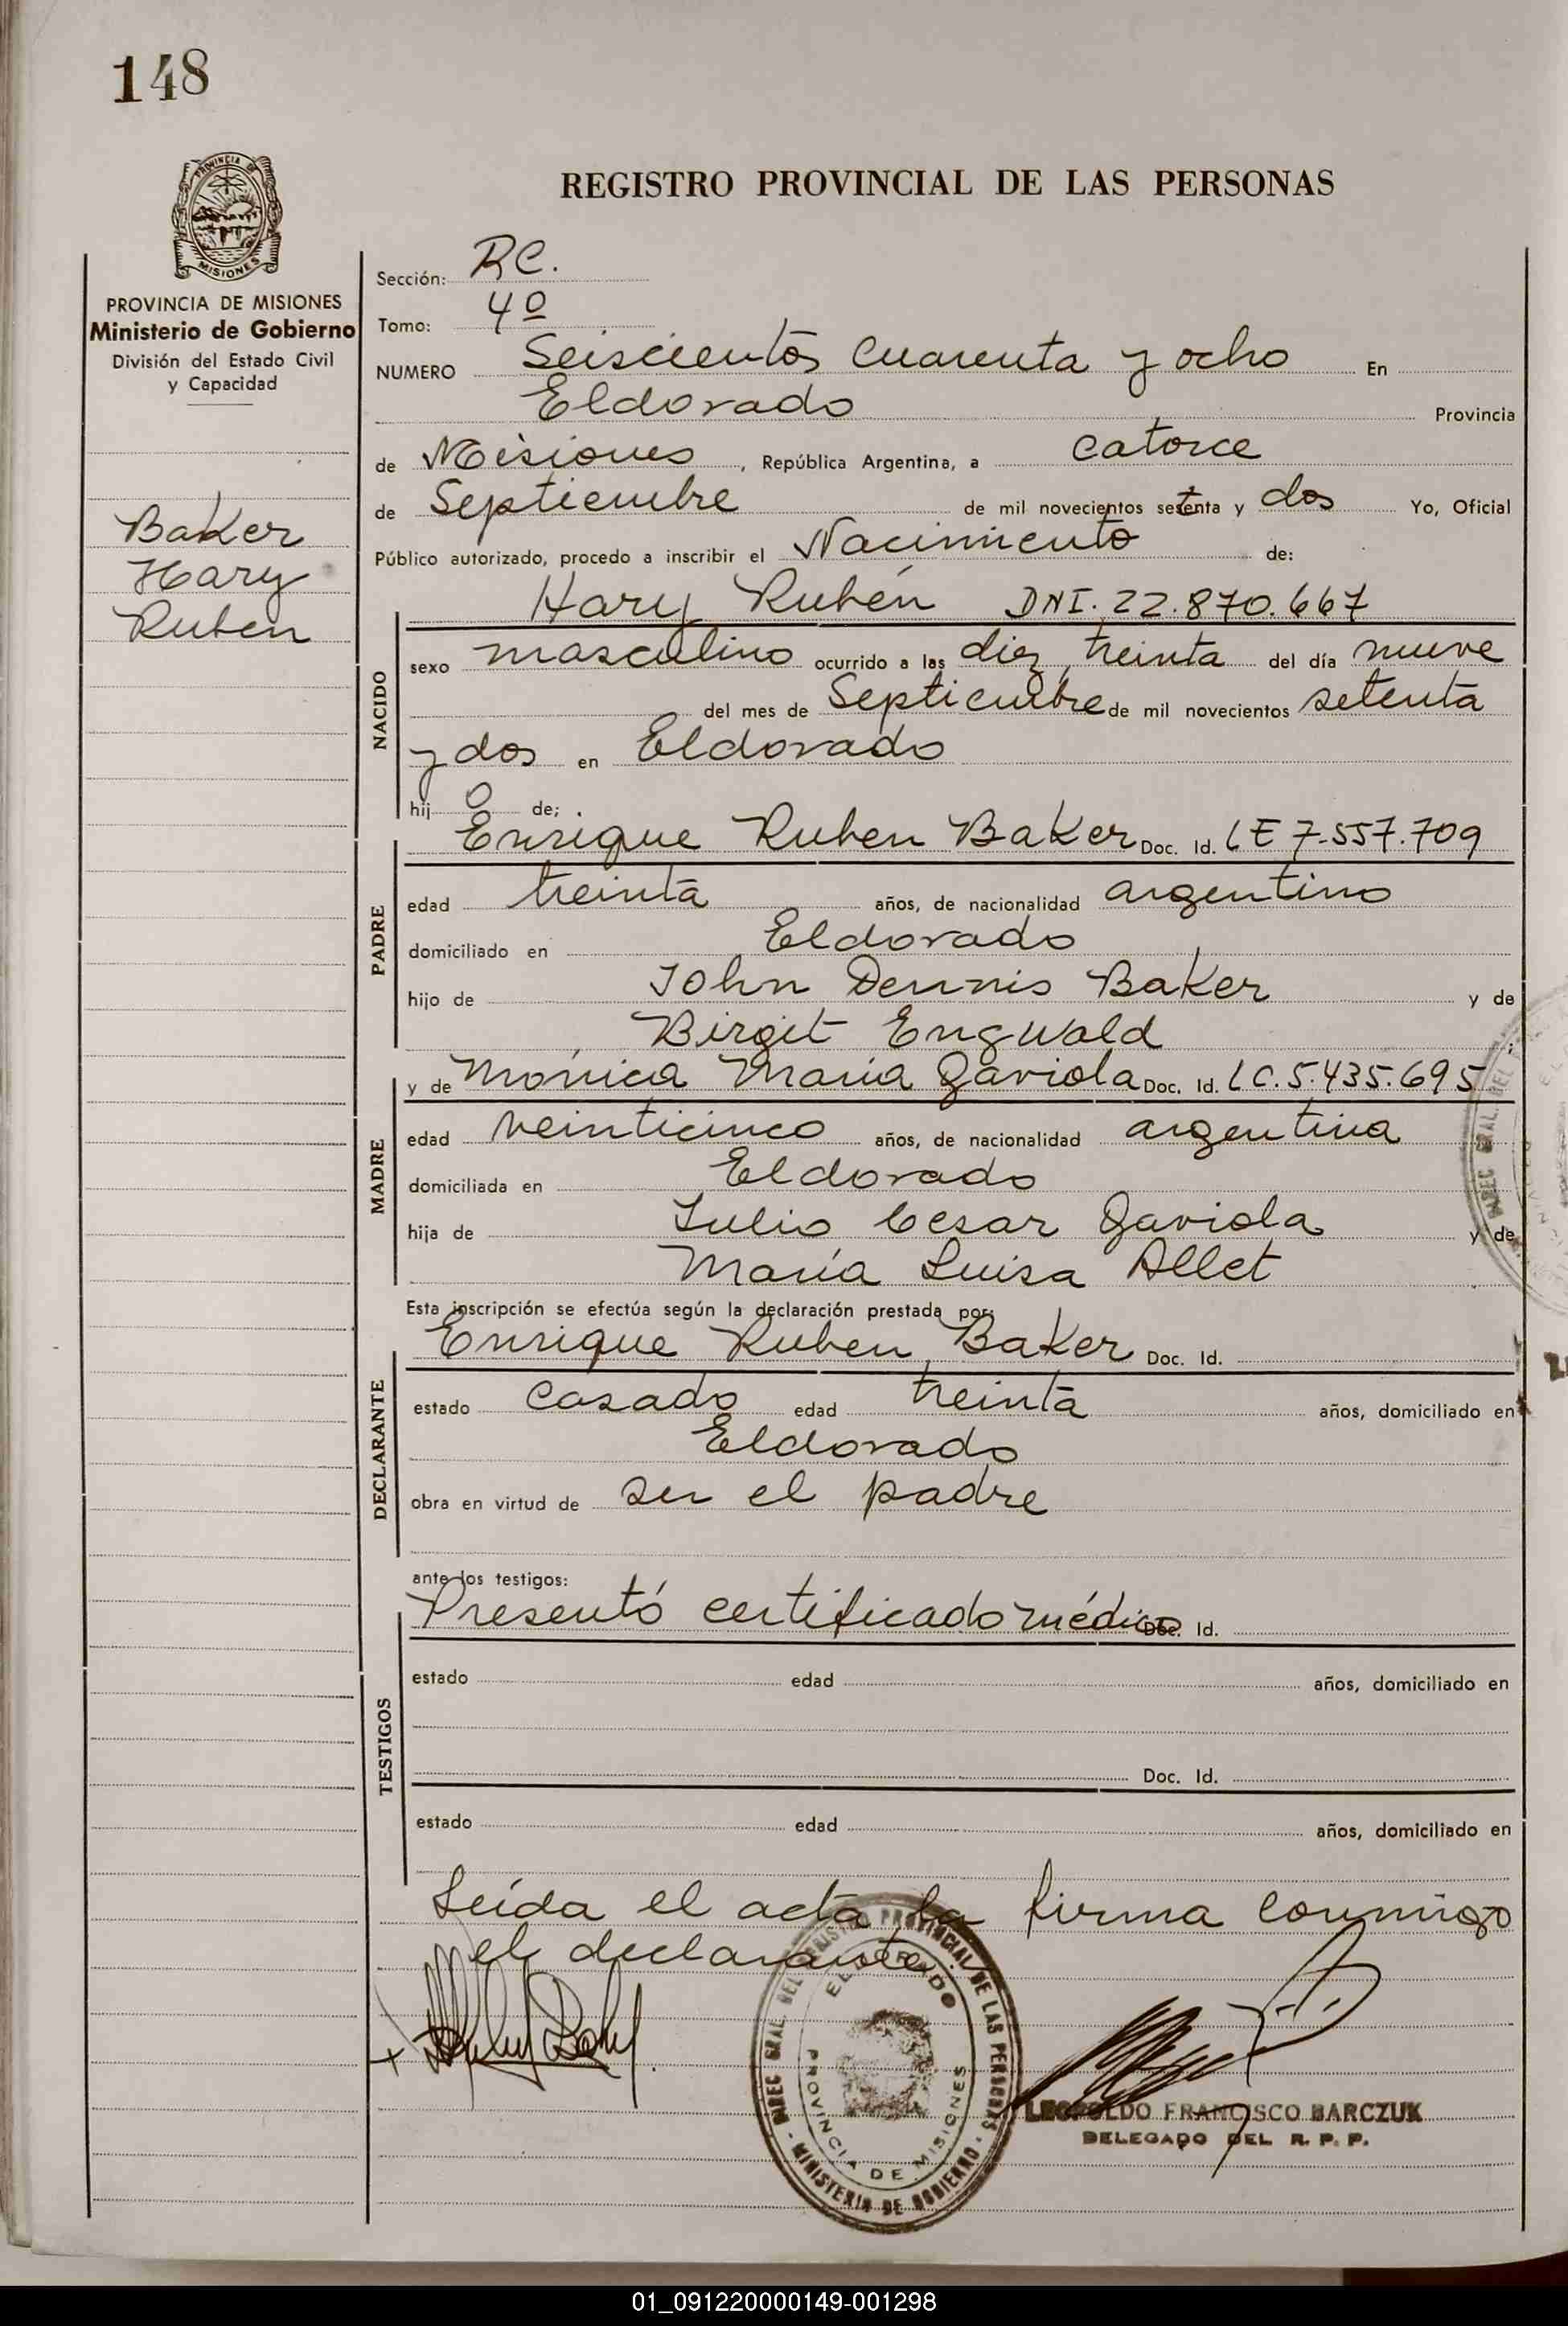 148
PROVINCIA DE
MISIONES
PROVINCIA DE MISIONES
Ministerio de Gobierno
División del Estado Civil
y Capacidad
Baker
Hary
Ruben
REGISTRO PROVINCIAL DE LAS PERSONAS
Sección: RC.
Tomo: 4º
NUMERO Seiscientos cuarenta y ocho En
Eldorado Provincia
de Misiones, República Argentina, a catorce
de Septiembre de mil novecientos setenta y dos Yo, Oficial
Público autorizado, procedo a inscribir el Nacimiento de:
Hary Rubén DNI. 22.870.667
NACIDO
sexo masculino ocurrido a las diez, treinta del día nueve
del mes de Septiembre de mil novecientos setenta
y dos en Eldorado
hij o de;
Enrique Ruben Baker Doc. Id. LE 7.557.709
PADRE
edad treinta años, de nacionalidad argentino
domiciliado en Eldorado
hijo de John Dennis Baker y de
Birgit Engwald
y de Mónica María Gaviola Doc. Id. LC. 5.435.695
MADRE
edad veinticinco años, de nacionalidad argentina
domiciliada en Eldorado
hija de Julio Cesar Gaviola y de
María Luisa Allet
Esta inscripción se efectúa según la declaración prestada por:
Enrique Ruben Baker Doc. Id.
DECLARANTE
estado casado edad treinta años, domiciliado en
Eldorado
obra en virtud de ser el padre
ante los testigos:
Presentó certificado médico Doc. Id.
TESTIGOS
estado edad años, domiciliado en
Doc. Id.
estado edad años, domiciliado en
Leída el acta la firma conmigo
el declarante.
DIREC GRAL. DEL REGISTRO PROVINCIAL DE LAS PERSONAS
ELDORADO
PROVINCIA DE MISIONES
MINISTERIO DE GOBIERNO
LEOPOLDO FRANCISCO BARCZUK
DELEGADO DEL R. P. P.
01_091220000149-001298